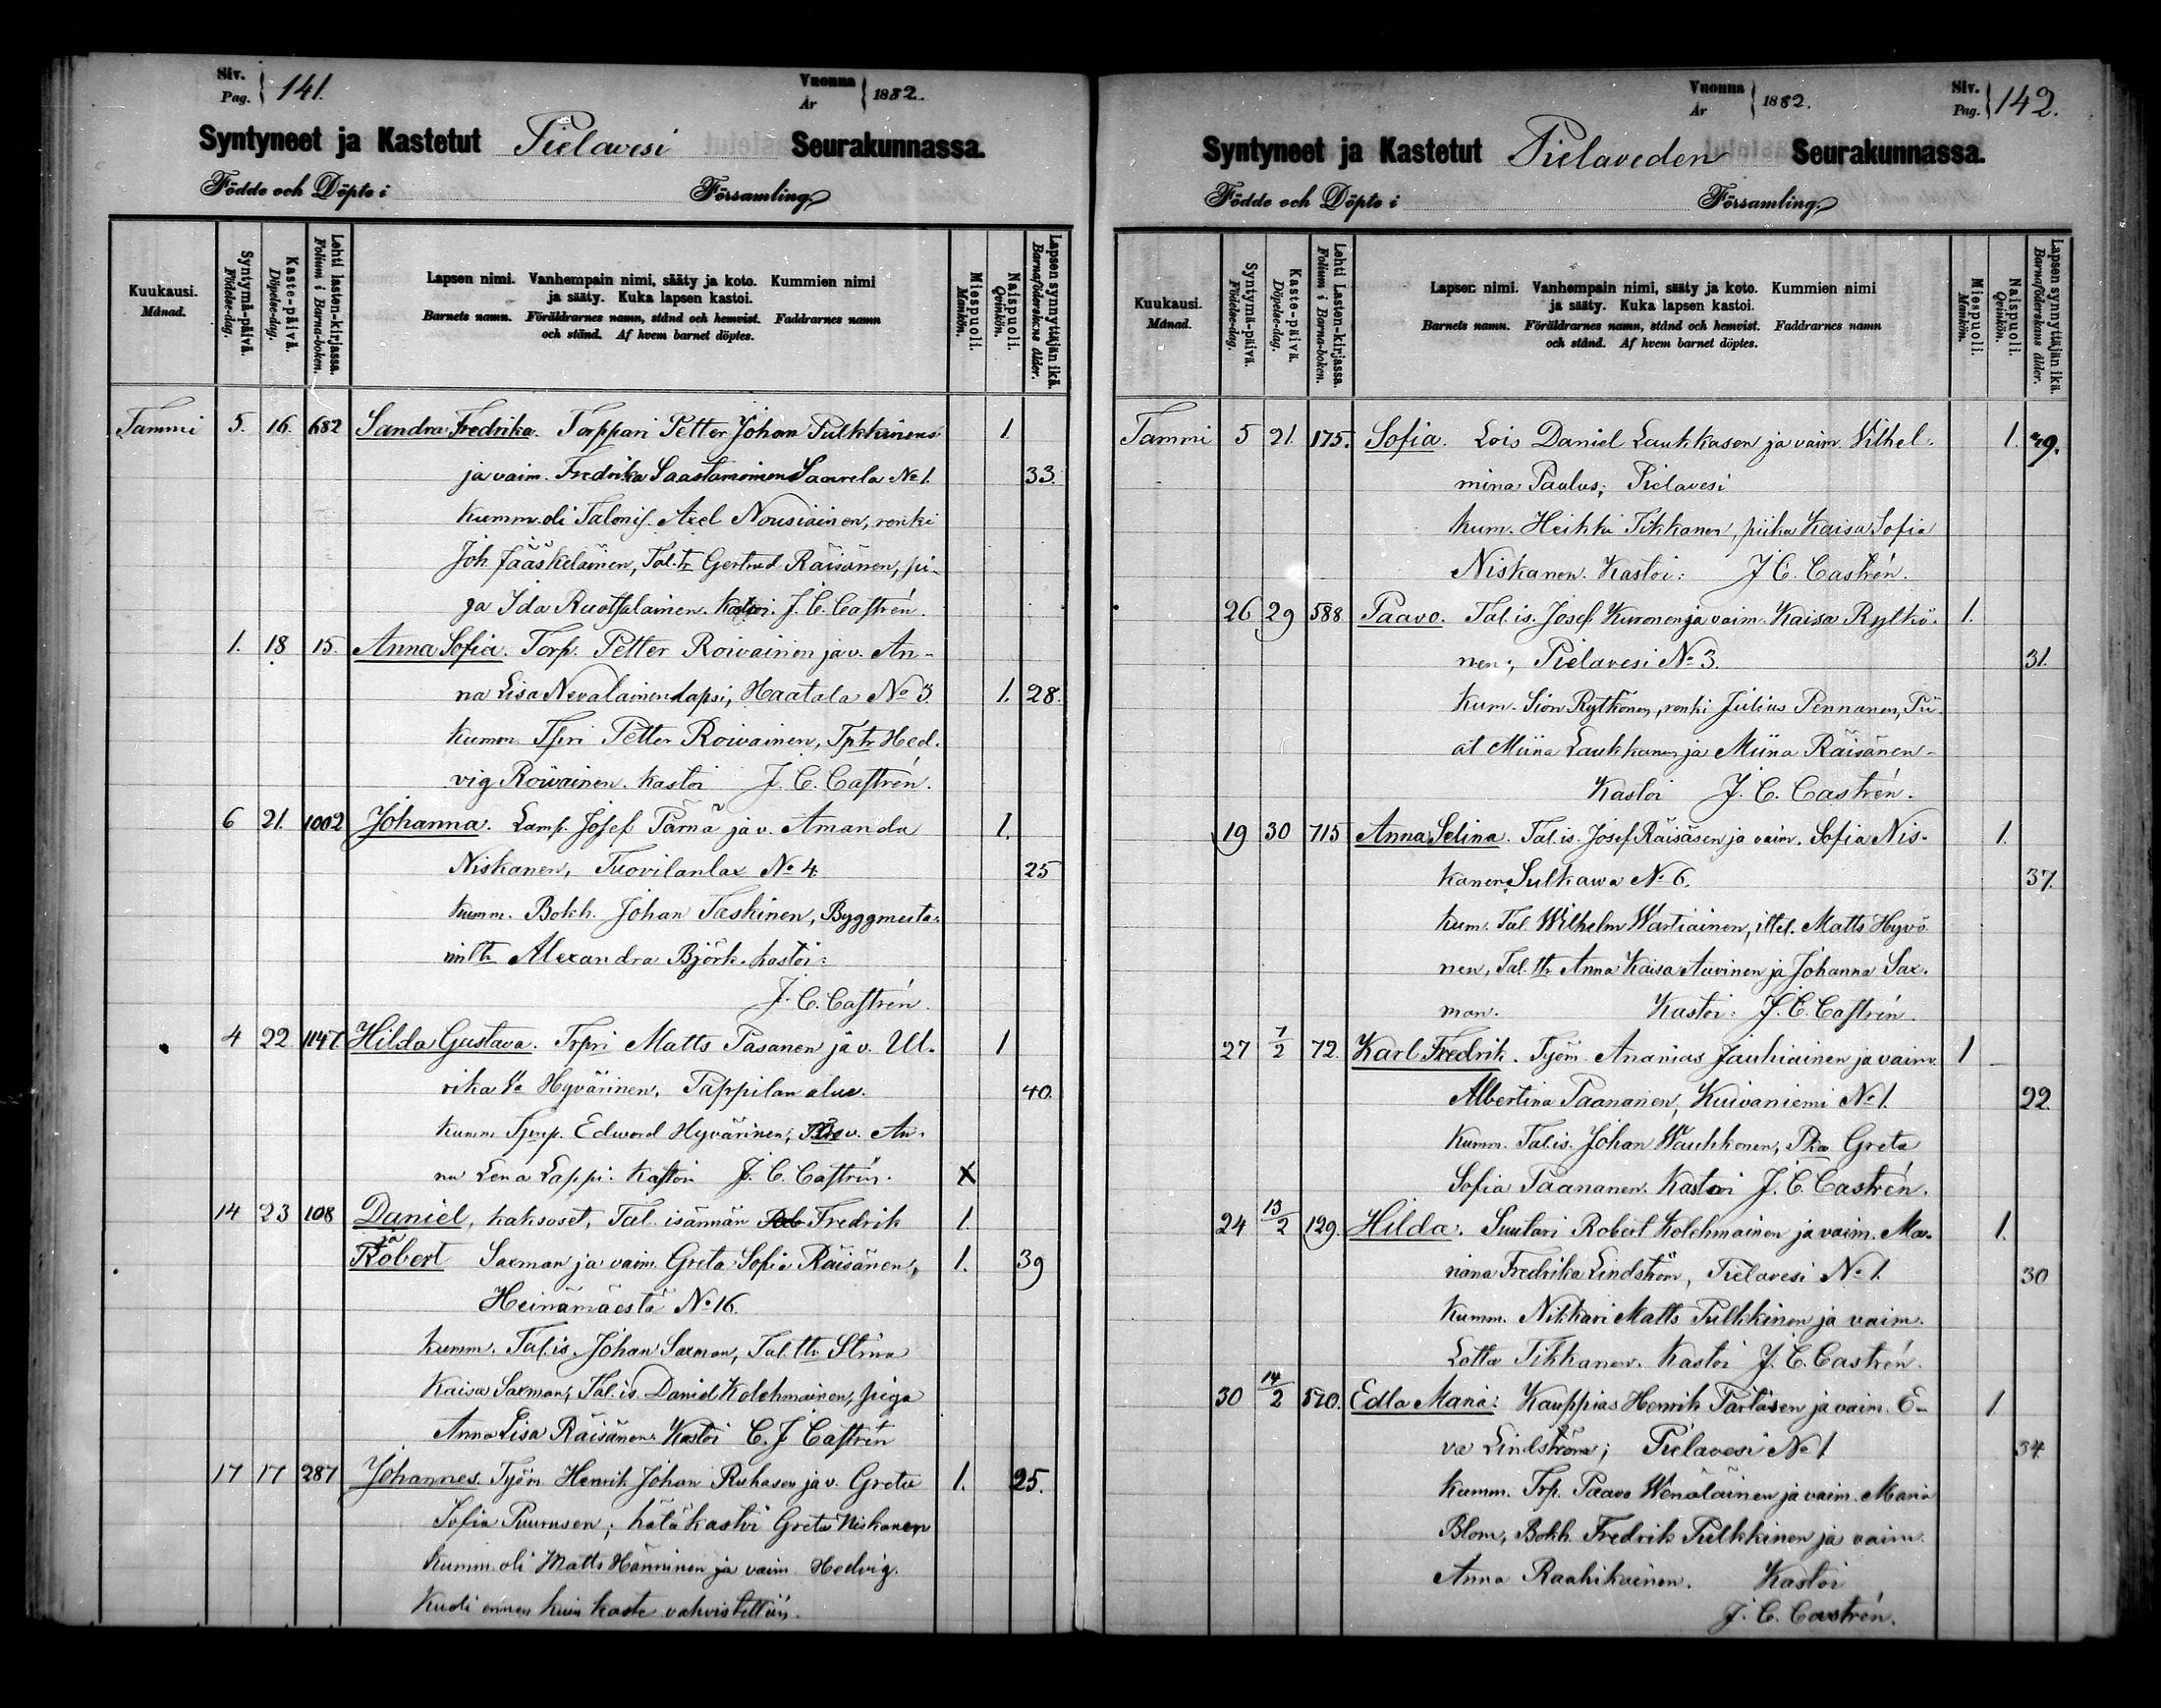 Siv. Pag. 141. Vuonna År 1882.
Syntyneet ja Kastetut Pielavesi Seurakunnassa.
Födde och Döpte i Församling.
Kuukausi. Månad.
Syntymä-päivä. Födelse-dag.
Kaste-päivä. Döpelse-dag.
Lehti lasten-kirjassa. Folium i Barna-boken.
Lapsen nimi. Vanhempain nimi, sääty ja koto. Kummien nimi
ja sääty. Kuka lapsen kastoi.
Barnets namn. Föräldrarnes namn, stånd och hemvist. Faddrarnes namn
och stånd. Af hvem barnet döptes.
Miespuoli. Mankön.
Naispuoli. Qvinkön.
Lapsen synnyttäjän ikä. Barnaföderskans ålder.
Tammi 5. 16. 682 Sandra Fredrika. Torppari Petter Johan Pulkkinens 1.
ja vaim. Fredrika Saastamoinen Saarela No 1. 33.
kumm. oli Talonis. Axel Nousiainen, renki
Joh Jääskeläinen, Tal. tr Gertrud Räisänen, pi-
ga Ida Ruotsalainen. Kastoi. J. C. Castrén.
1. 18 15. Anna Sofia. Torp. Petter Roivainen ja v. An-
na Lisa Nevalainen lapsi, Haatala No 3. 1. 28.
kumm. Petter Roivainen, Hed-
vig Roivainen. Kastoi J. C. Castrén.
6 21. 1002 Johanna. Lamp. Josef Pärnä ja v. Amanda 1.
Niskanen, Tuovilanlax No 4. 25
kumm. Bokh. Johan Taskinen,
Alexandra Björk. kastoi:
J. C. Castrén.
4 22. 1147. Hilda Gustava. Trpri Matts Pasanen ja v. Ul- 1
rika Hyvärinen, Tappilan alus. 40.
kumm. Edward Hyvärinen, v. An-
na Lena Lappi. Kastoi J. C. Castrén. X
14 23 108 Daniel, kaksoset, Tal. isännän Fredrik 1.
ja
Robert Saxman ja vaim. Greta Sofia Räisänen, 1. 39
Heinämäestä No 16.
kumm. Tal. is. Johan Saxman, Tal. ttr Stina
Kaisa Saxman, Tal. is. Daniel Kolehmainen, piga
Anna Lisa Räisänen. Kastoi C. J Castrén
17 17 287 Johannes. Työm Henrik Johan Ruhasen ja v. Greta 1. 25.
Sofia Puurusen; hätäkastoi Greta Niskanen
kumm. oli Matts Hänninen ja vaim Hedvig.
Kuoli ennen kuin kaste vahvistettiin.
Vuonna År 1882. Siv. Pag. 142.
Syntyneet ja Kastetut Pielaveden Seurakunnassa.
Födde och Döpte i Församling.
Kuukausi. Månad.
Syntymä-päivä. Födelse-dag.
Kaste-päivä. Döpelse-dag.
Lehti Lasten-kirjassa. Folium i Barna-boken.
Lapsen nimi. Vanhempain nimi, sääty ja koto. Kummien nimi
ja sääty. Kuka lapsen kastoi.
Barnets namn. Föräldrarnes namn, stånd och hemvist. Faddrarnes namn
och stånd. Af hvem barnet döptes.
Miespuoli. Mankön.
Naispuoli. Qvinkön.
Lapsen synnyttäjän ikä. Barnaföderskans ålder.
Tammi 5 21. 175. Sofia. Lois Daniel Laukkasen ja vaim. Vilhel- 1.
mina Paulus; Pielavesi
kum. Heikki Tikkanen, piika Kaisa Sofia
Niskanen. Kastoi: J C. Castrén.
26 29 588 Paavo. Tal. is. Josef Kuronen ja vaim. Kaisa Rytkö- 1.
nen; Pielavesi No 3. 31.
kum. Rytkönen, renki Julius Pennanen, Pii-
at Miina Laukkanen ja Miina Räisänen-
Kastoi J. C. Castrén.
19 30 715 Anna Selina. Tal. is. Josef Räisäsen ja vaim. Sofia Nis- 1.
kanen, Sulkawa No 6. 37.
kum. Tal. Wilhelm Wartiainen, ittel. Matts Hyvö-
nen, Tal. ttr Anna Kaisa Auvinen ja Johanna Sax-
man. Kastoi: J. C. Castrén.
27 1/2 72. Karl Fredrik. Työm. Ananias Jauhiainen ja vaim. 1
Albertina Paananen, Kuivaniemi No 1. 22.
kumm. Tal. is. Johan Wauhkonen, Pka Greta
Sofia Paananen. Kastoi J. C. Castrén.
24 13/2 129. Hilda. Suutari Robert Kolehmainen ja vaim. Ma- 1.
riana Fredrika Lindström, Pielavesi No 1. 30
kumm. Nikkari Matts Pulkkinen ja vaim.
Lotta Tikkanen. Kastoi J. C. Castrén.
30 14/2 570. Edla Maria: Kauppias Henrik Partasen ja vaim. E- 1
va Lindström; Pielavesi No 1 34
kumm. Trp. Paavo Wenäläinen ja vaim. Maria
Blom, Bokh. Fredrik Pulkkinen ja vaim.
Anna Raahikainen. Kastoi
J. C. Castrén.